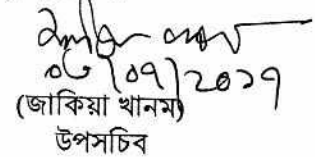 ০৫/০৭/২০১৭
(জাকিয়া খানম)
উপসচিব